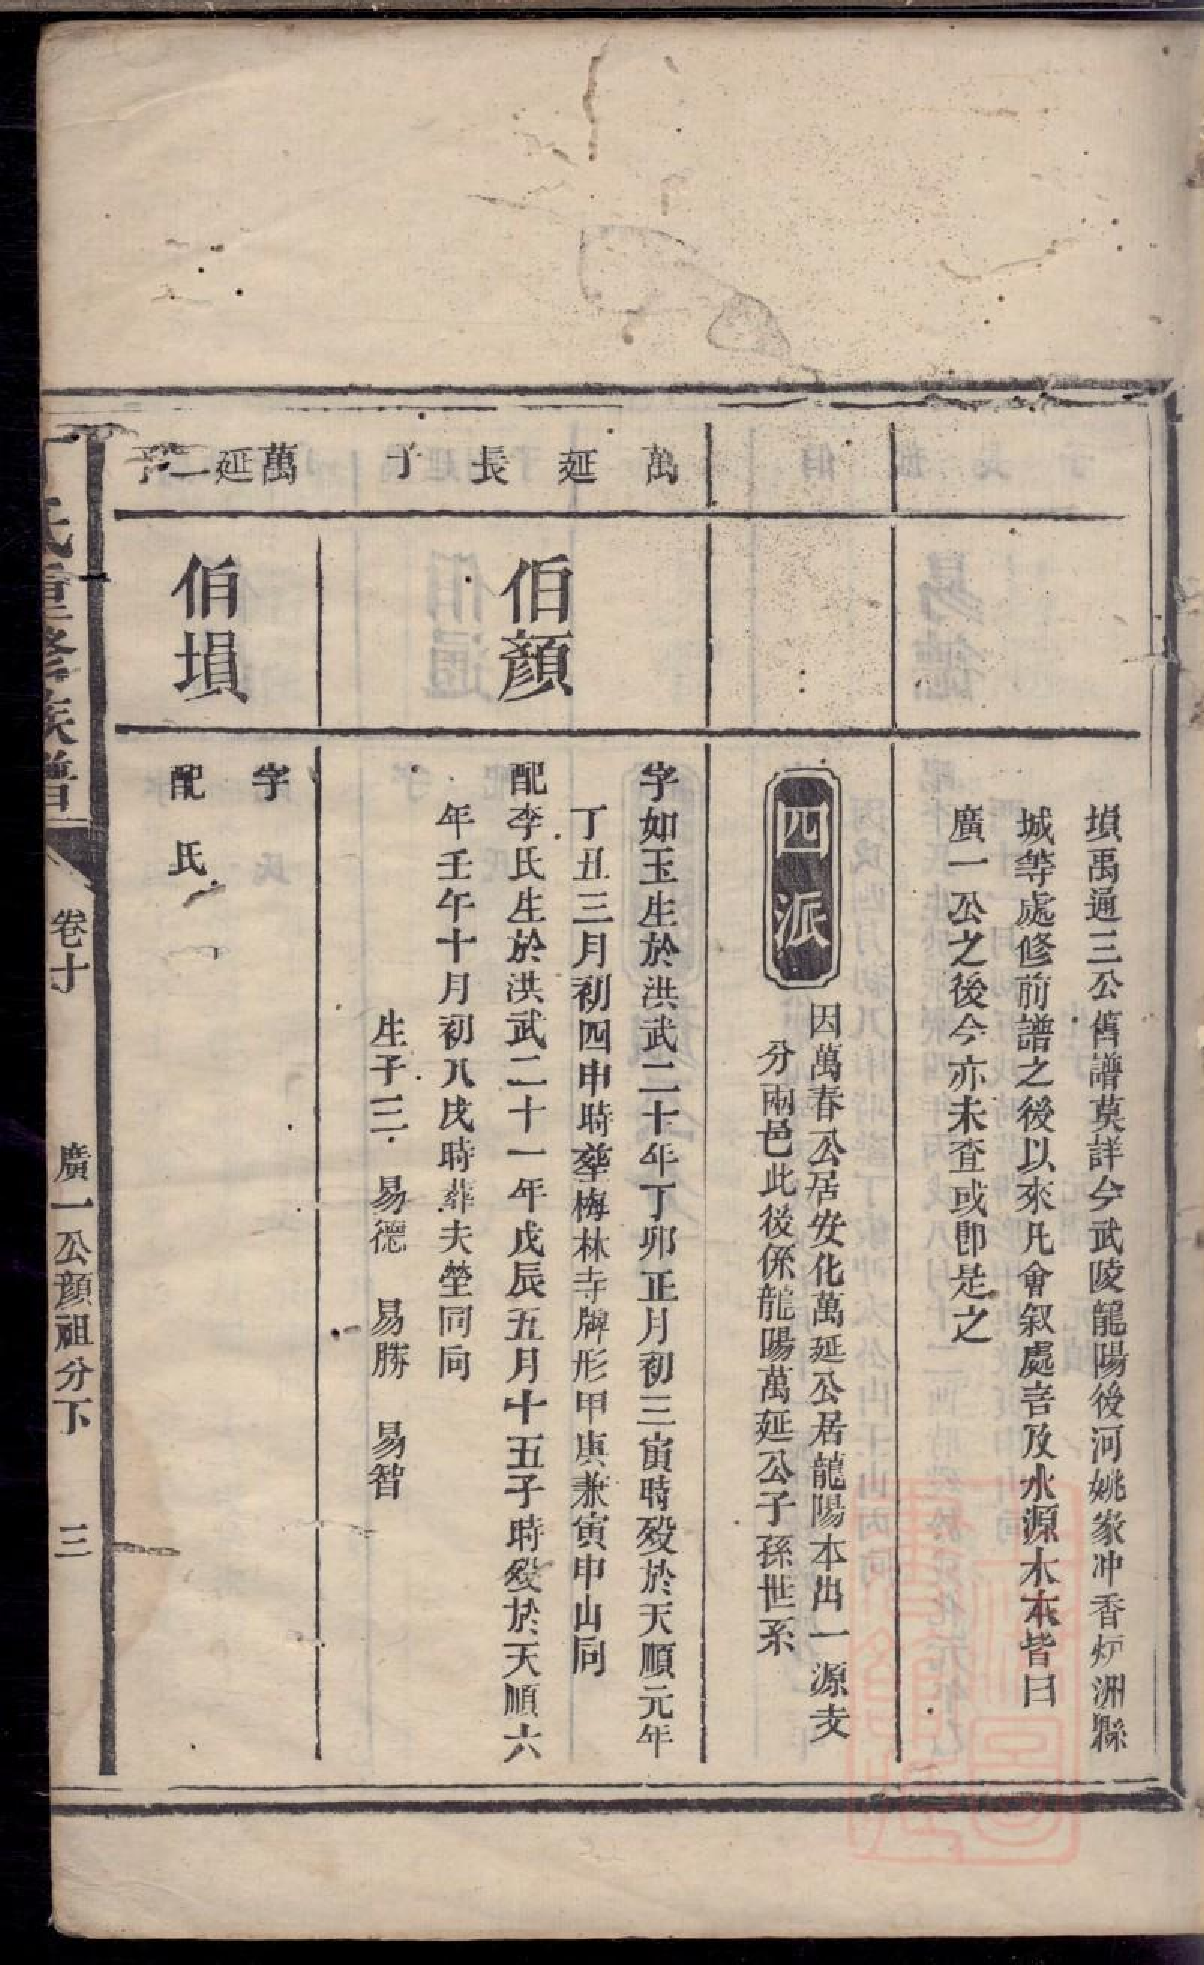 塤禹通三公舊譜莫詳今武陵龍陽後河姚家冲香炉洲縣
城等處修前譜之後以來凡會叙處言及水源木本皆曰
廣一公之後今亦未查或卽是之
四派
因萬春公居安化萬延公居龍陽本出一源支
分兩邑此後係龍陽萬延公子孫世系
萬延長子
伯顏
字如玉生於洪武二十年丁卯正月初三寅時殁於天順元年
丁丑三月初四申時塟梅林寺牌形甲庚兼寅申山向
配李氏生於洪武二十一年戊辰五月十五子時殁於天順六
年壬午十月初八戌時葬夫塋同向
生子三 易德 易勝 易智
萬延二子
伯塤
字
配 氏
氏重修族譜
卷十
廣一公顏祖分下
三